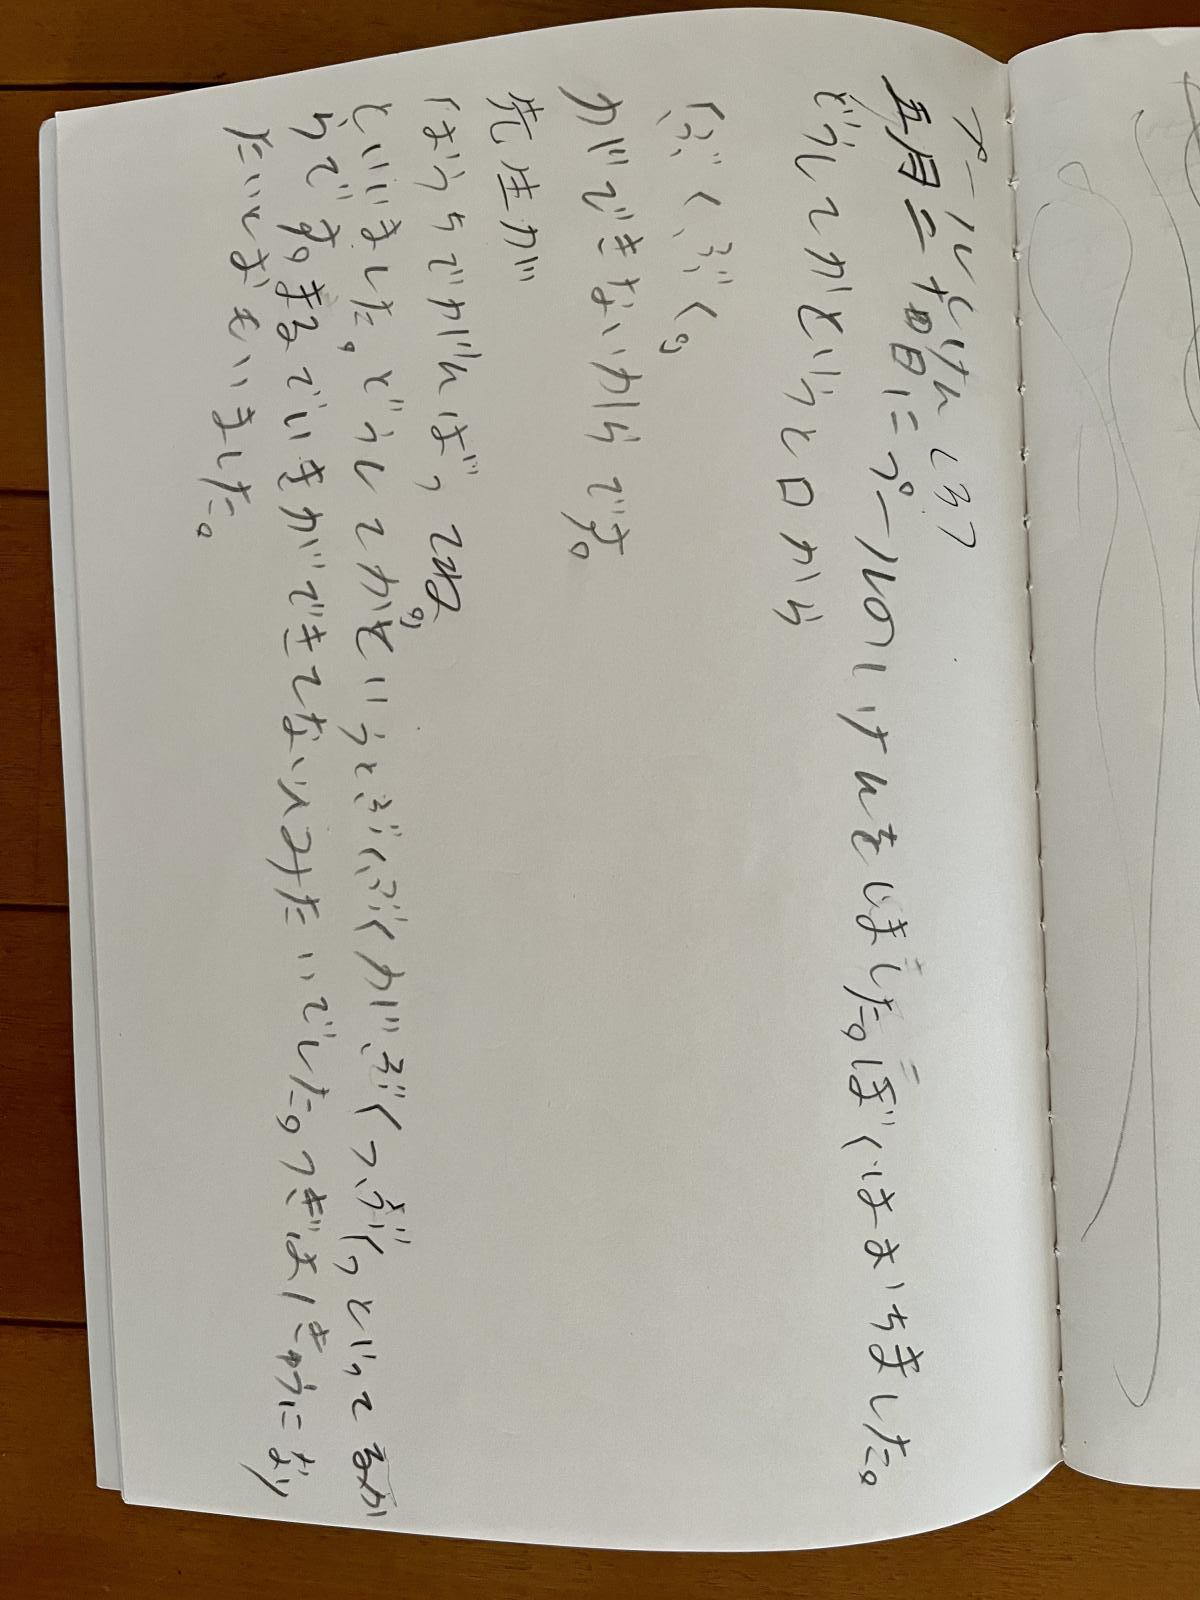 プールだけんしろう
五月二十四日にプールのしけんをしました。ぼくはおちました。
どうしてかというと口から
「ぶくぶく。」
ができないからです。
先生が
「はうちでがんばってね。」
といいました。どうしてかというとぶくぶくがぶくっぶくっといってるか
らです。まるでいきができてないみたいでした。つぎは一きゅうになり
たいとおもいました。